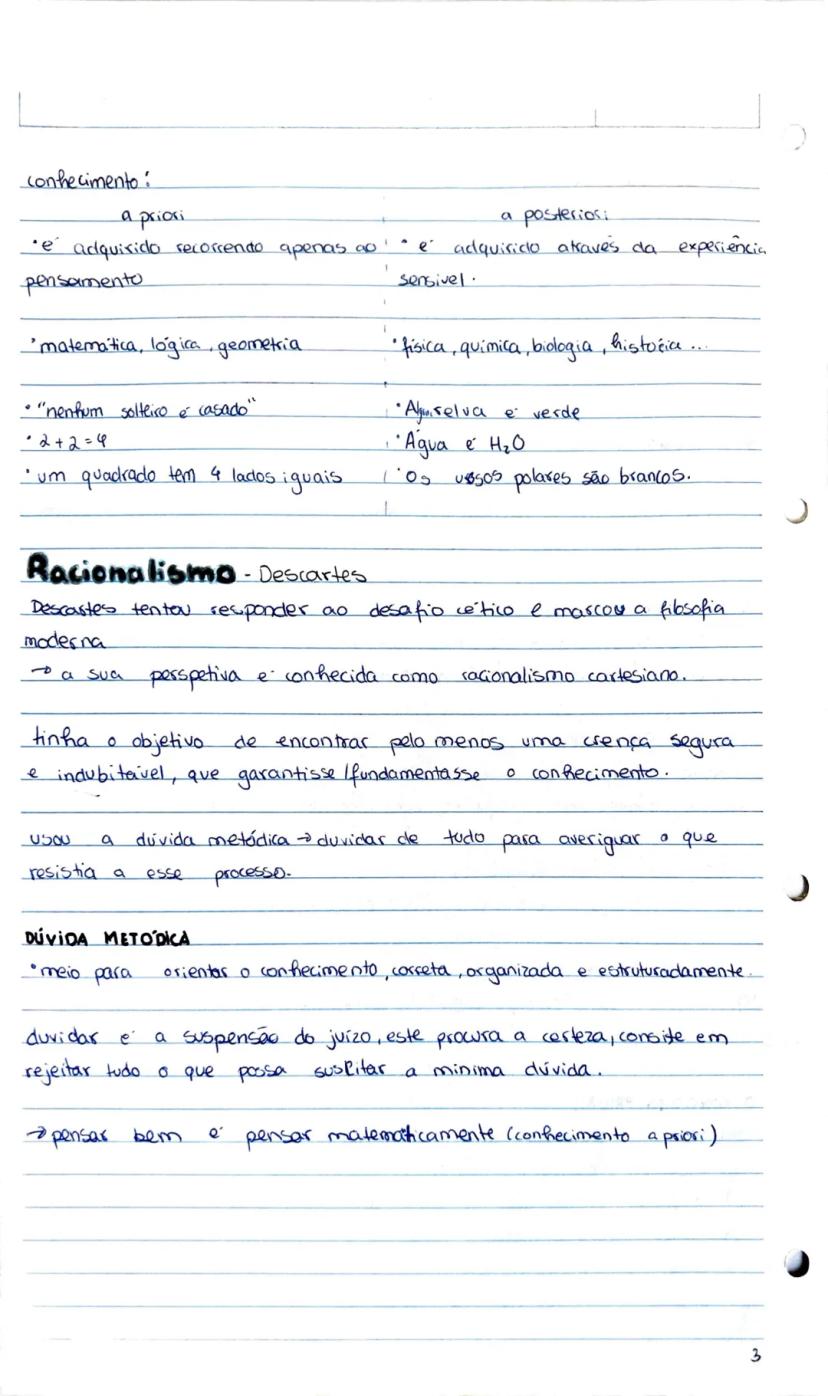 conhecimento:
a priori
a posteriori
•é adquirido recorrendo apenas ao
•é adquirido através da experiência
pensamento
sensivel.
•matemática, lógica, geometria
•física, química, biologia, história...
•"nenhum solteiro é casado"
• é verde
•2+2=4
•Água é H₂O
•um quadrado tem 4 lados iguais
•Os ursos polares são brancos.
Racionalismo - Descartes
Descartes tentou responder ao desafio cético e marcou a filosofia
moderna
→ a sua perspetiva é conhecida como racionalismo cartesiano.
tinha o objetivo de encontrar pelo menos uma crença segura
e indubitável, que garantisse/fundamentasse o conhecimento.
usou a dúvida metódica → duvidar de tudo para averiguar o que
resistia a esse processo.
DÚVIDA METÓDICA
•meio para orientar o conhecimento, correta, organizada e estruturadamente.
duvidar é a suspensão do juízo, este procura a certeza, consite em
rejeitar tudo o que possa suscitar a minima dúvida.
→ pensar bem é pensar matematicamente (conhecimento a priori)
3